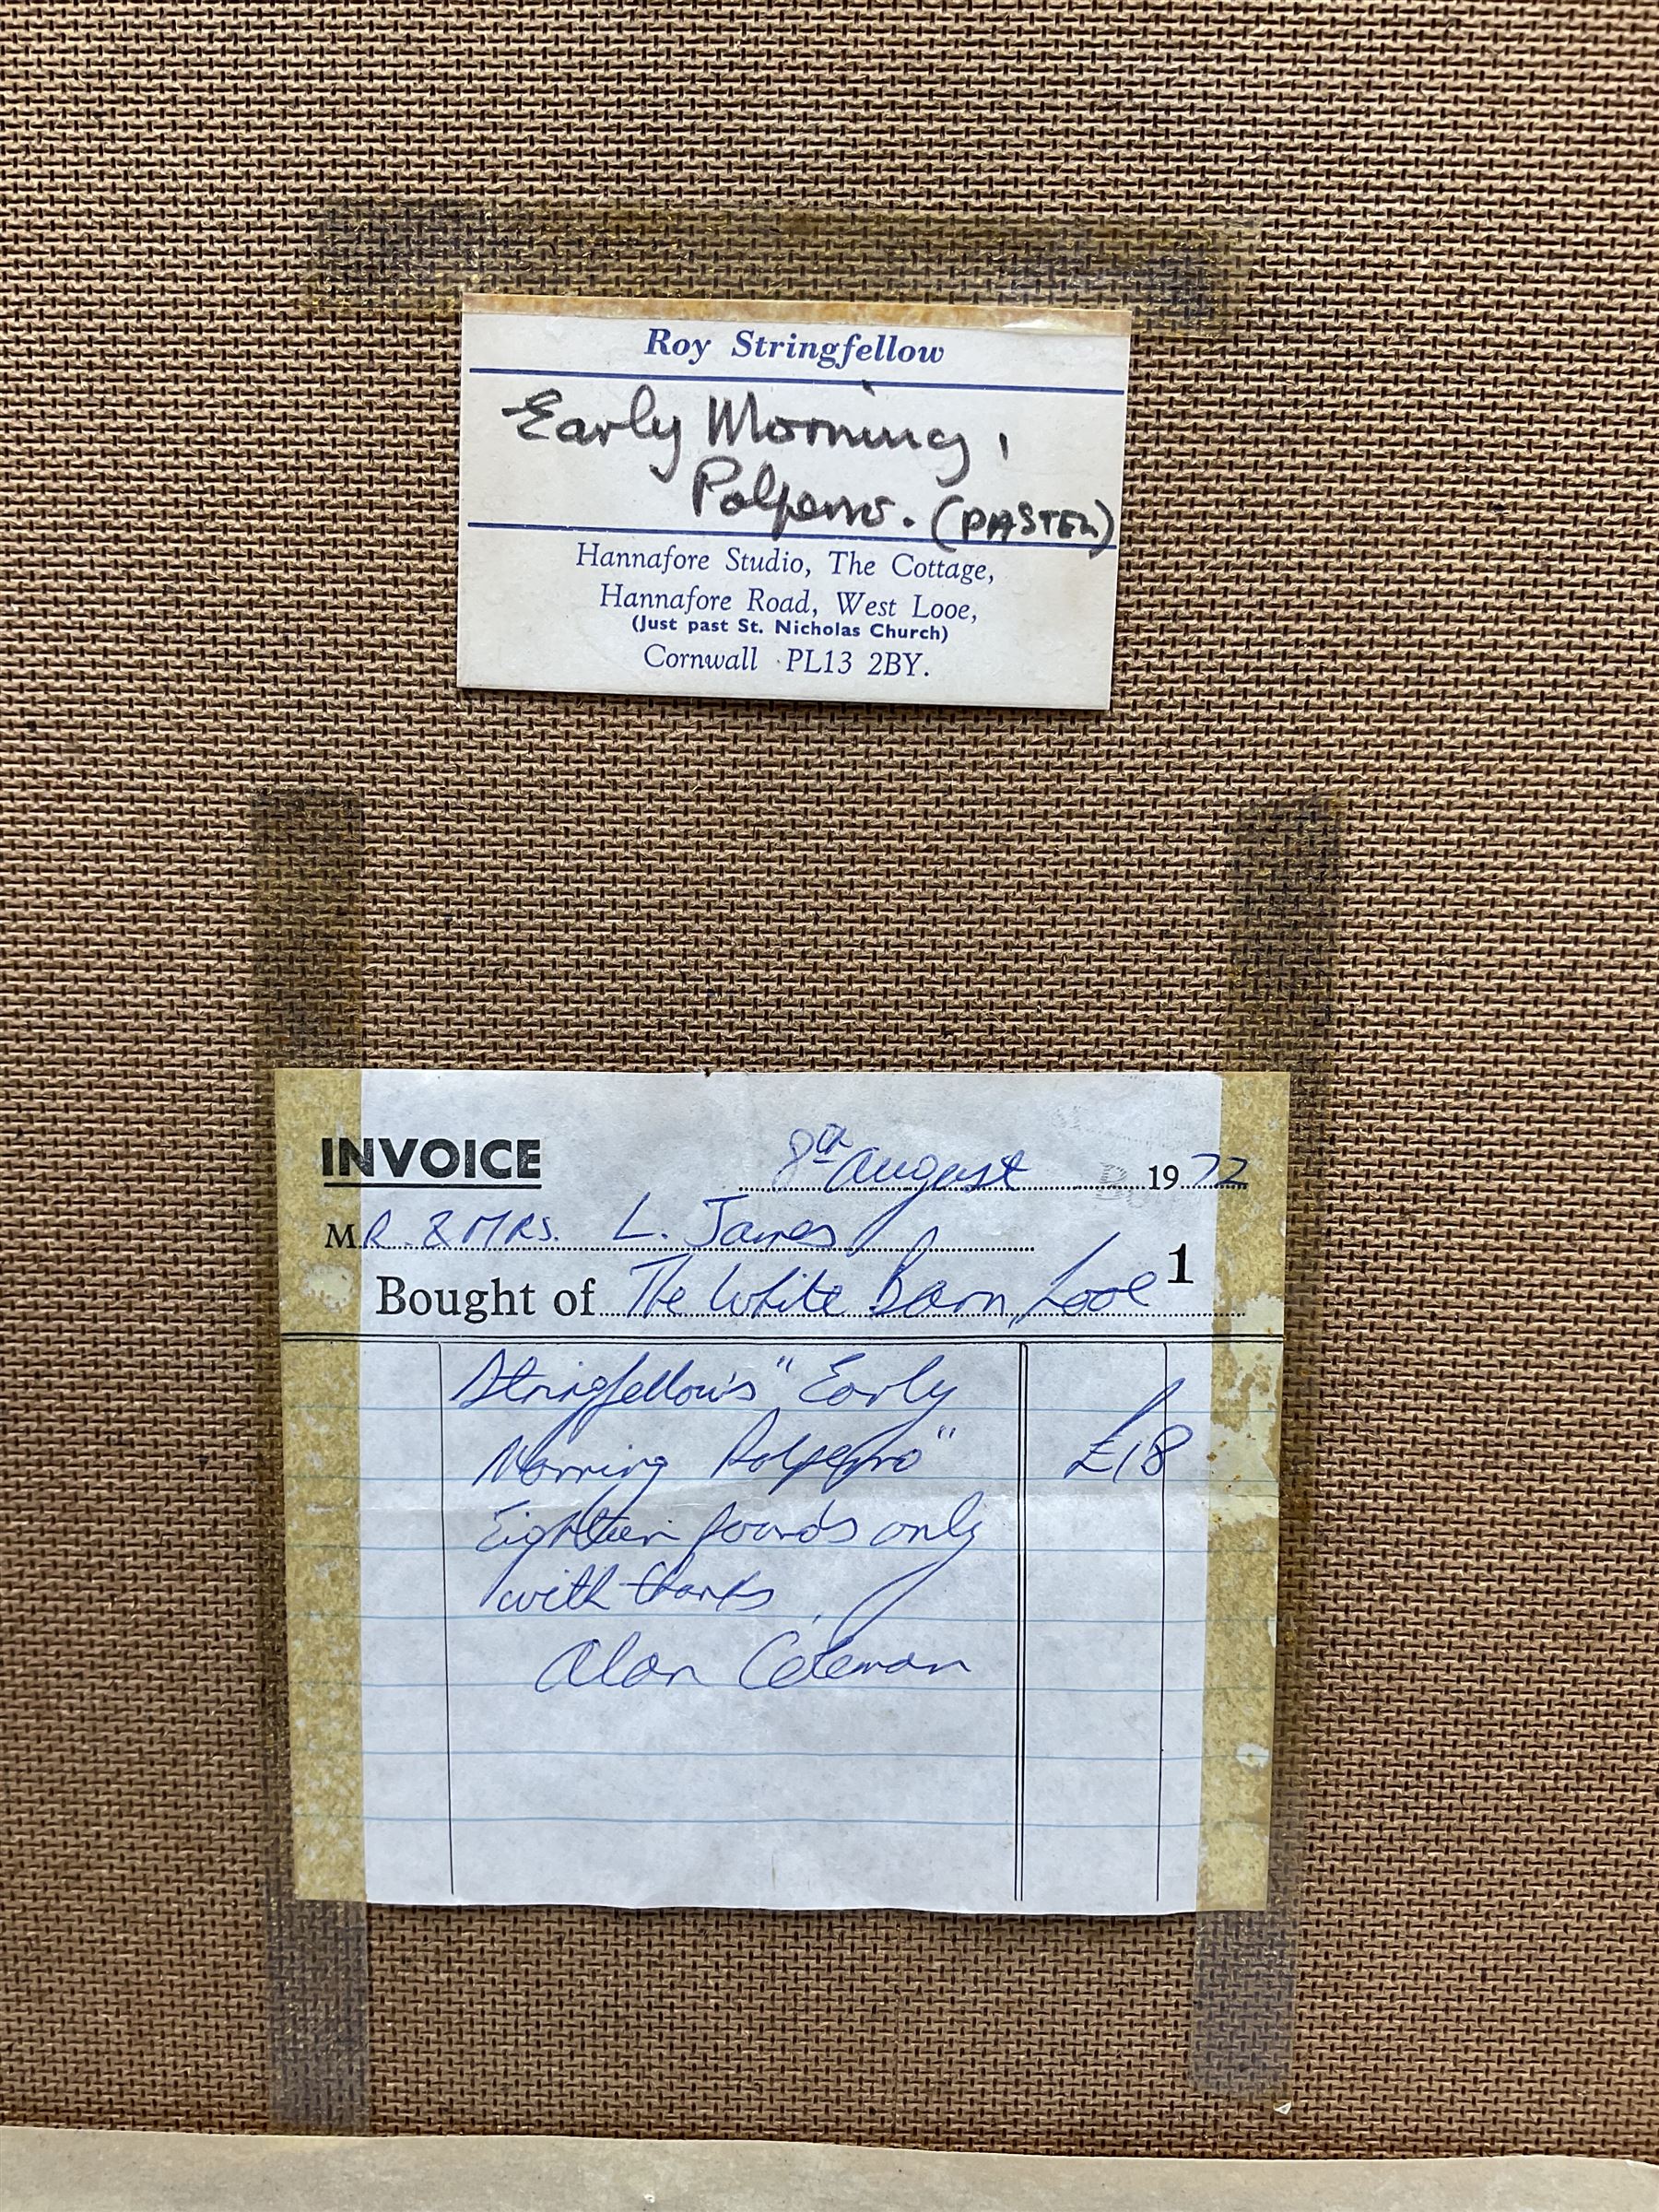 Roy Stringfellow
Early Morning,
Polperro. (PASTEL)
Hannafore Studio, The Cottage,
Hannafore Road, West Looe,
(Just past St. Nicholas Church)
Cornwall PL13 2BY.
INVOICE
8th August 1972
MR. & MRS. L. James
1
Bought of The White Barn, Looe
Stringfellow's "Early
Morning Polperro" £18
Eighteen pounds only
with thanks
Alan Coleman